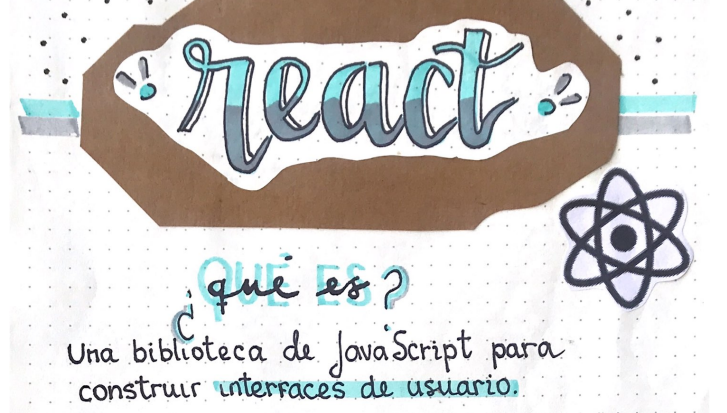 react
¿qué es?
Una biblioteca de JavaScript para
construir interfaces de usuario.